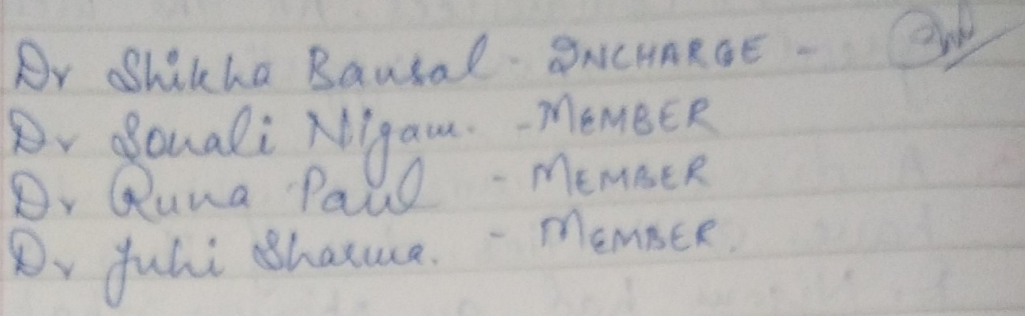 Dr Shikha Bansal - INCHARGE -
Dr Sonali Nigam. - MEMBER
Dr Runa Paul - MEMBER
Dr Juhi Sharma. - MEMBER.